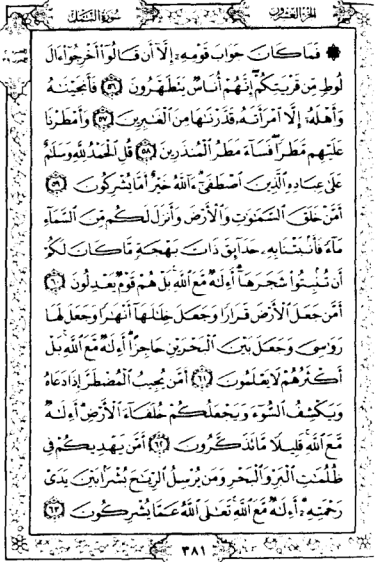 الجزء العشرون سورة النمل
۞ فَمَا كَانَ جَوَابَ قَوْمِهِۦٓ إِلَّآ أَن قَالُوٓا۟ أَخْرِجُوٓا۟ ءَالَ
لُوطٍ مِّن قَرْيَتِكُمْ إِنَّهُمْ أُنَاسٌ يَتَطَهَّرُونَ ٥٦ فَأَنجَيْنَـٰهُ
وَأَهْلَهُۥٓ إِلَّا ٱمْرَأَتَهُۥ قَدَّرْنَـٰهَا مِنَ ٱلْغَـٰبِرِينَ ٥٧ وَأَمْطَرْنَا
عَلَيْهِم مَّطَرًا فَسَآءَ مَطَرُ ٱلْمُنذَرِينَ ٥٨ قُلِ ٱلْحَمْدُ لِلَّهِ وَسَلَـٰمٌ
عَلَىٰ عِبَادِهِ ٱلَّذِينَ ٱصْطَفَىٰٓ ءَآللَّهُ خَيْرٌ أَمَّا يُشْرِكُونَ ٥٩
أَمَّنْ خَلَقَ ٱلسَّمَـٰوَٰتِ وَٱلْأَرْضَ وَأَنزَلَ لَكُم مِّنَ ٱلسَّمَآءِ
مَآءً فَأَنۢبَتْنَا بِهِۦ حَدَآئِقَ ذَاتَ بَهْجَةٍ مَّا كَانَ لَكُمْ
أَن تُنۢبِتُوا۟ شَجَرَهَآ أَءِلَـٰهٌ مَّعَ ٱللَّهِ بَلْ هُمْ قَوْمٌ يَعْدِلُونَ ٦٠
أَمَّن جَعَلَ ٱلْأَرْضَ قَرَارًا وَجَعَلَ خِلَـٰلَهَآ أَنْهَـٰرًا وَجَعَلَ لَهَا
رَوَٰسِىَ وَجَعَلَ بَيْنَ ٱلْبَحْرَيْنِ حَاجِزًا أَءِلَـٰهٌ مَّعَ ٱللَّهِ بَلْ
أَكْثَرُهُمْ لَا يَعْلَمُونَ ٦١ أَمَّن يُجِيبُ ٱلْمُضْطَرَّ إِذَا دَعَاهُ
وَيَكْشِفُ ٱلسُّوٓءَ وَيَجْعَلُكُمْ خُلَفَآءَ ٱلْأَرْضِ أَءِلَـٰهٌ
مَّعَ ٱللَّهِ قَلِيلًا مَّا تَذَكَّرُونَ ٦٢ أَمَّن يَهْدِيكُمْ فِى
ظُلُمَـٰتِ ٱلْبَرِّ وَٱلْبَحْرِ وَمَن يُرْسِلُ ٱلرِّيَـٰحَ بُشْرًۢا بَيْنَ يَدَىْ
رَحْمَتِهِۦٓ أَءِلَـٰهٌ مَّعَ ٱللَّهِ تَعَـٰلَى ٱللَّهُ عَمَّا يُشْرِكُونَ ٦٣
٣٨١